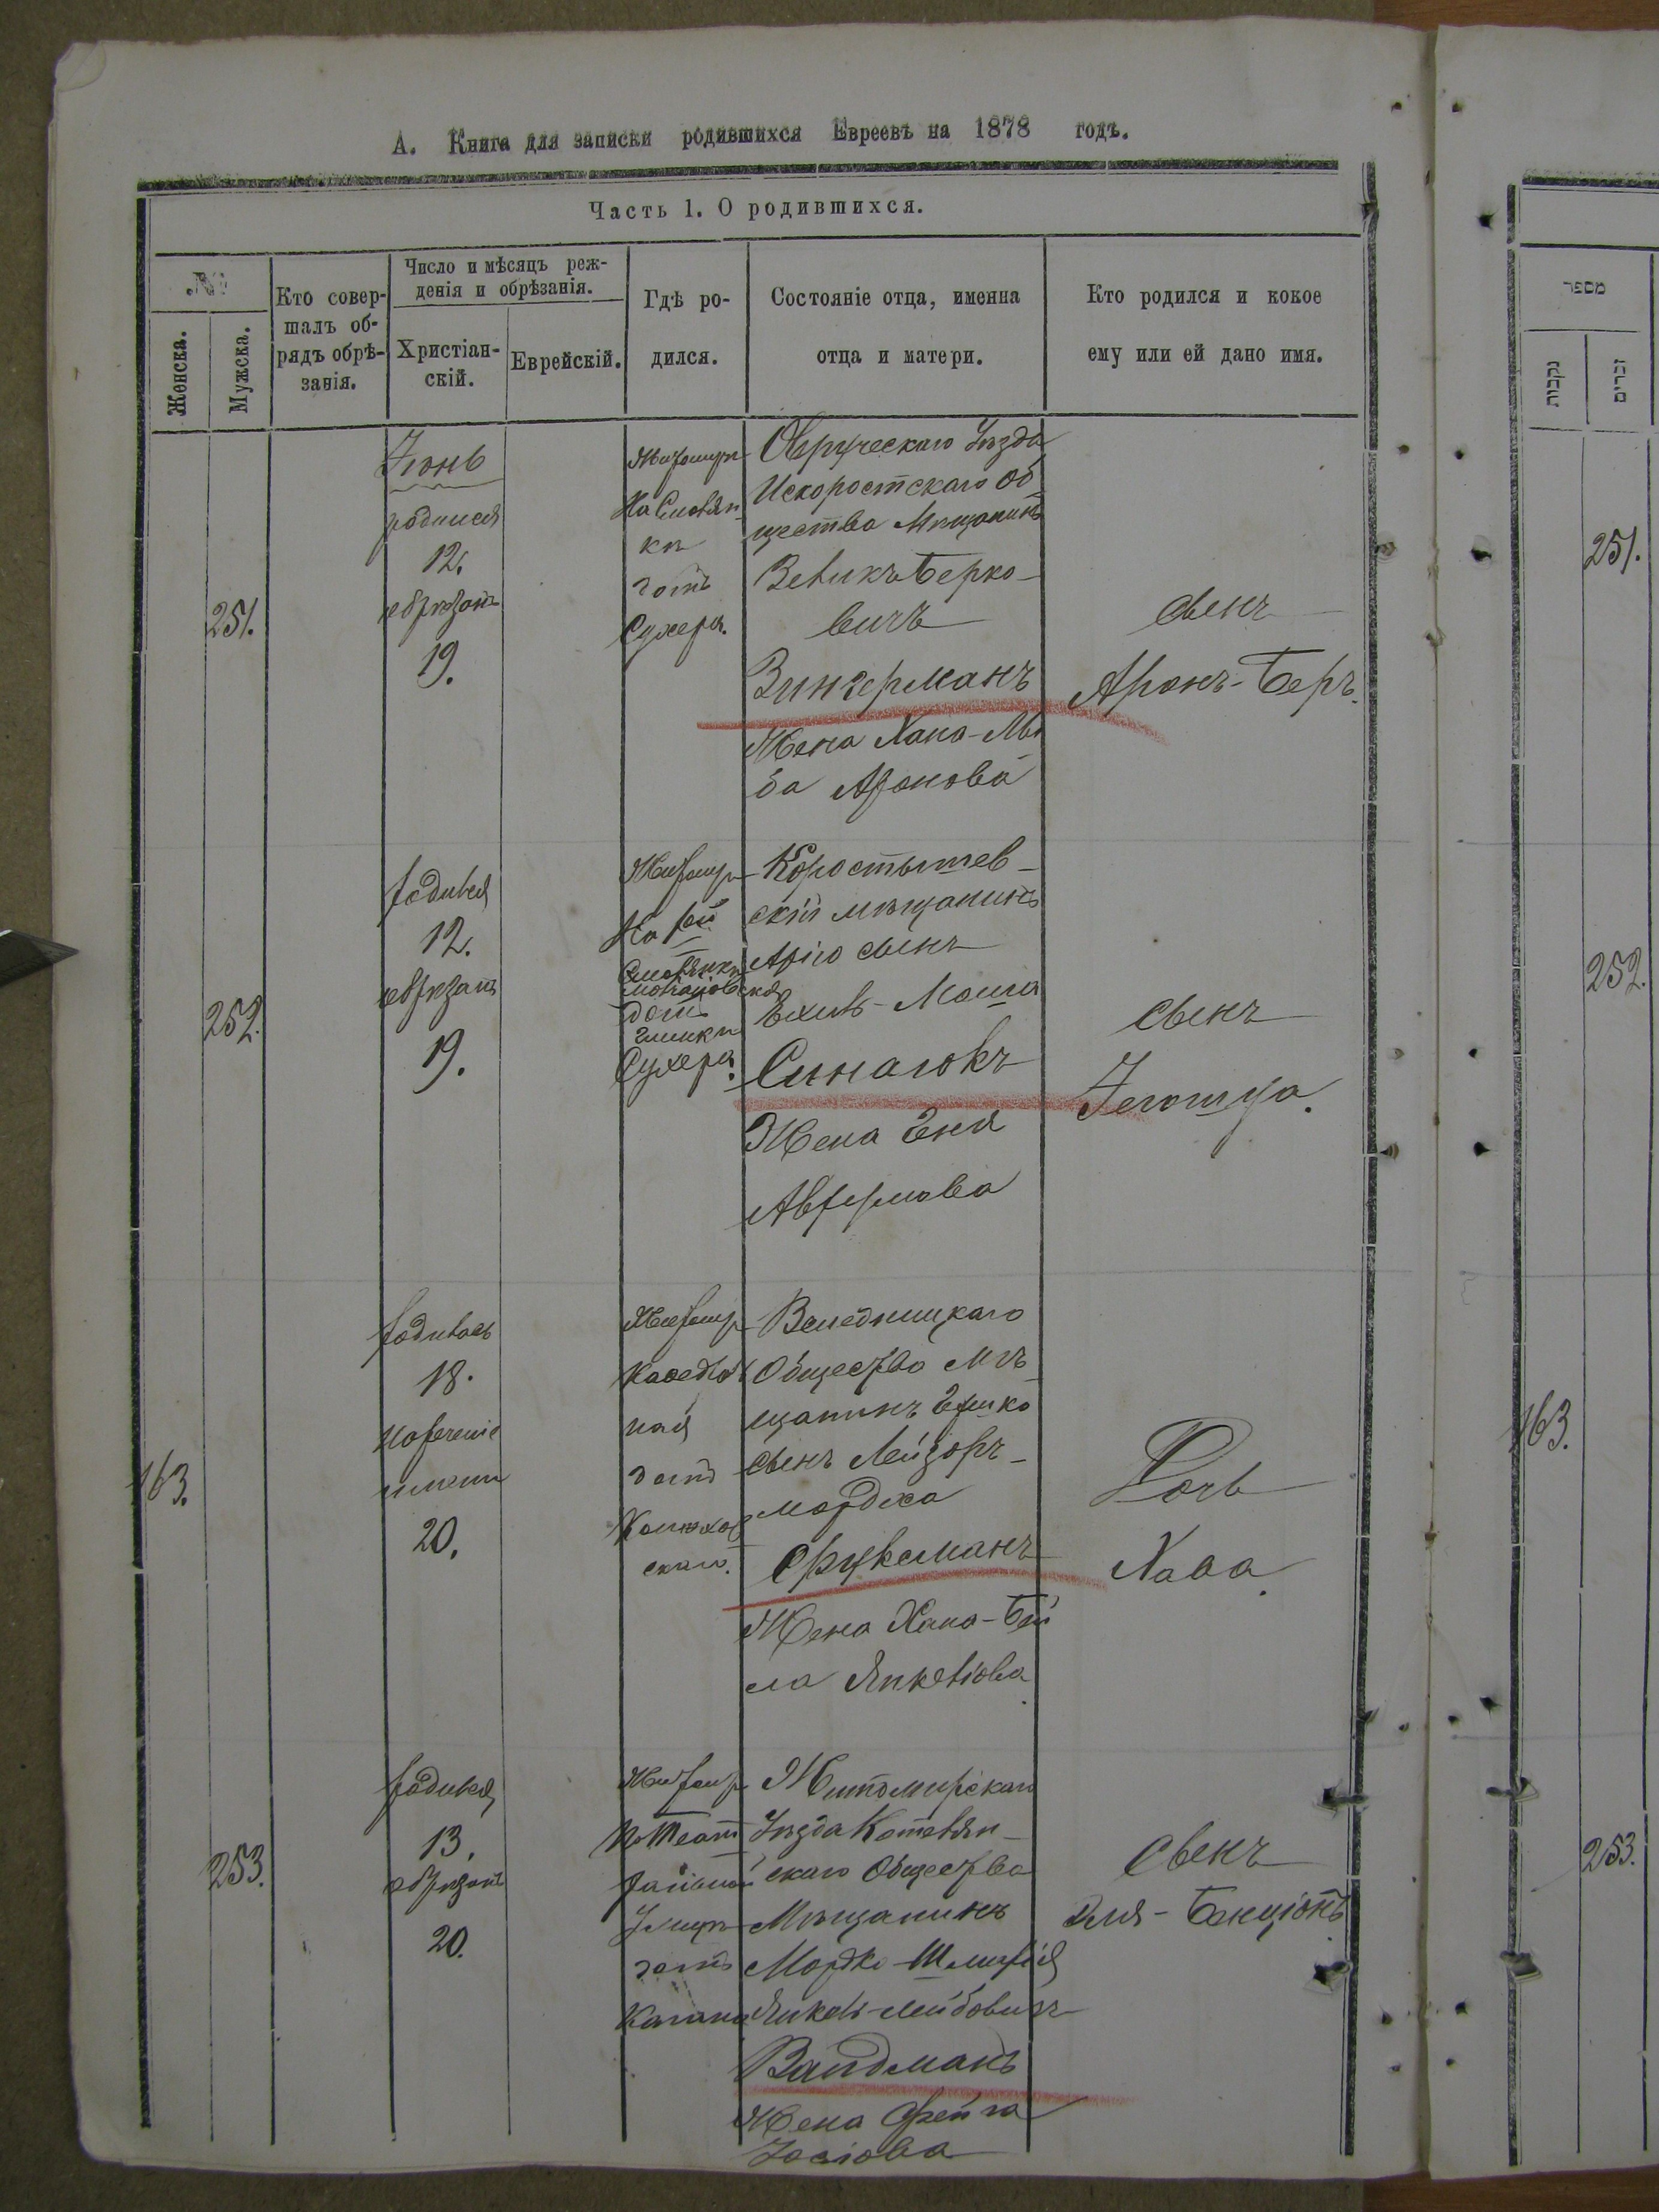 А. Книга для записки родившихся Евреевъ на 1878 годъ.
Часть 1. О родившихся.
№
Женска.
Мужска.
Кто совер-
шалъ об-
рядъ обрѣ-
занія.
Число и мѣсяцъ реж-
денія и обрѣзанія.
Христіан-
скій.
Еврейскій.
Гдѣ ро-
дился.
Состояніе отца, именна
отца и матери.
Кто родился и кокое
ему или ей дано имя.
251.
Іюнь
родился
12.
обрѣзанъ
19.
Житомиръ
домъ
Сухера.
Овручскаго Уѣзда
Искоростскаго Об
щества Мѣщанинъ
Зевикъ Берко-
вичъ
Зингерманъ
Жена Хана-
ба Аронова
сынъ
Аронъ-Беръ.
252.
родился
12.
обрѣзанъ
19.
Житомир
На
домъ
Сухера.
Коростышев-
скій мѣщанинъ
Аріо сынъ
Ехиль-Моша
Синалокъ
Жена Еня
сынъ
Іегошуа.
163.
родилась
18.
нареченіе
имени
20.
Житомир
Каѳедраль
ная
домъ
скаго.
Веледницкаго
Общество Мѣ
щанинъ
сынъ Лейзоръ-
Мордха
Фруксманъ
Жена Хана-Бей
ла Янкеліова
Дочь
Хава.
253.
родился
13.
обрѣзанъ
20.
Житомир
домъ
Кагана
Житомирскаго
Уѣзда
скаго Общества
Мѣщанинъ
Мордко-
Янкель-Лейбовичъ
Вайдманъ
Жена Фейга
Іосіова
сынъ
Эля-Бенціонъ.
מספר
נקבות
זכרים
251.
252.
163.
253.